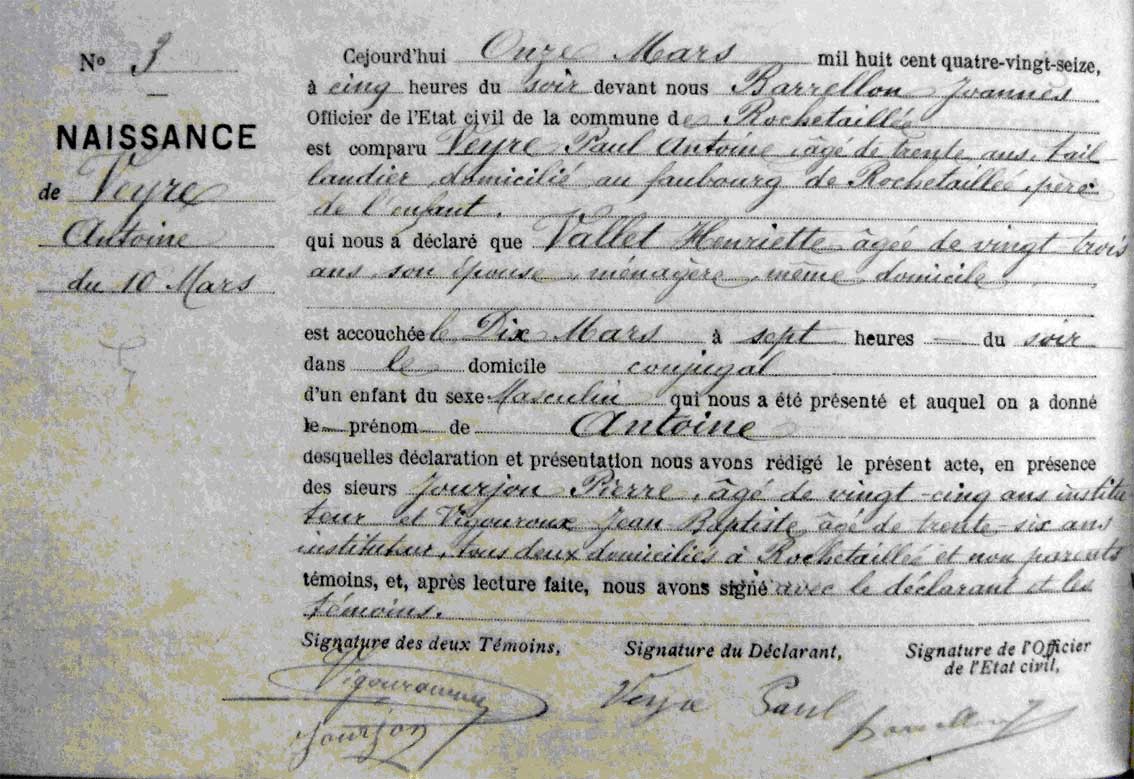 N° 3
NAISSANCE
de Veyre
Antoine
du 10 Mars
Cejourd'hui Onze Mars mil huit cent quatre-vingt-seize,
à cinq heures du soir devant nous Barrellon Joannès
Officier de l'Etat civil de la commune de Rochetaillée
est comparu Veyre Paul Antoine, âgé de trente ans, tail
landier, domicilié au faubourg de Rochetaillée, père
de l'enfant.
qui nous a déclaré que Vallet Henriette âgée de vingt trois
ans, son épouse, ménagère, même domicile
est accouchée le Dix Mars à sept heures — du soir
dans le domicile conjugal
d'un enfant du sexe Masculin qui nous a été présenté et auquel on a donné
le prénom de Antoine
desquelles déclaration et présentation nous avons rédigé le présent acte, en présence
des sieurs Jourjon Pierre, âgé de vingt-cinq ans institu
teur et Vigouroux Jean Baptiste âgé de trente-six ans
instituteur, tous deux domiciliés à Rochetaillée et non parents
témoins, et, après lecture faite, nous avons signé avec le déclarant et les
témoins.
Signature des deux Témoins, Signature du Déclarant, Signature de l'Officier
de l'Etat civil,
Vigouroux Veyre Paul Barrellon
Jourjon